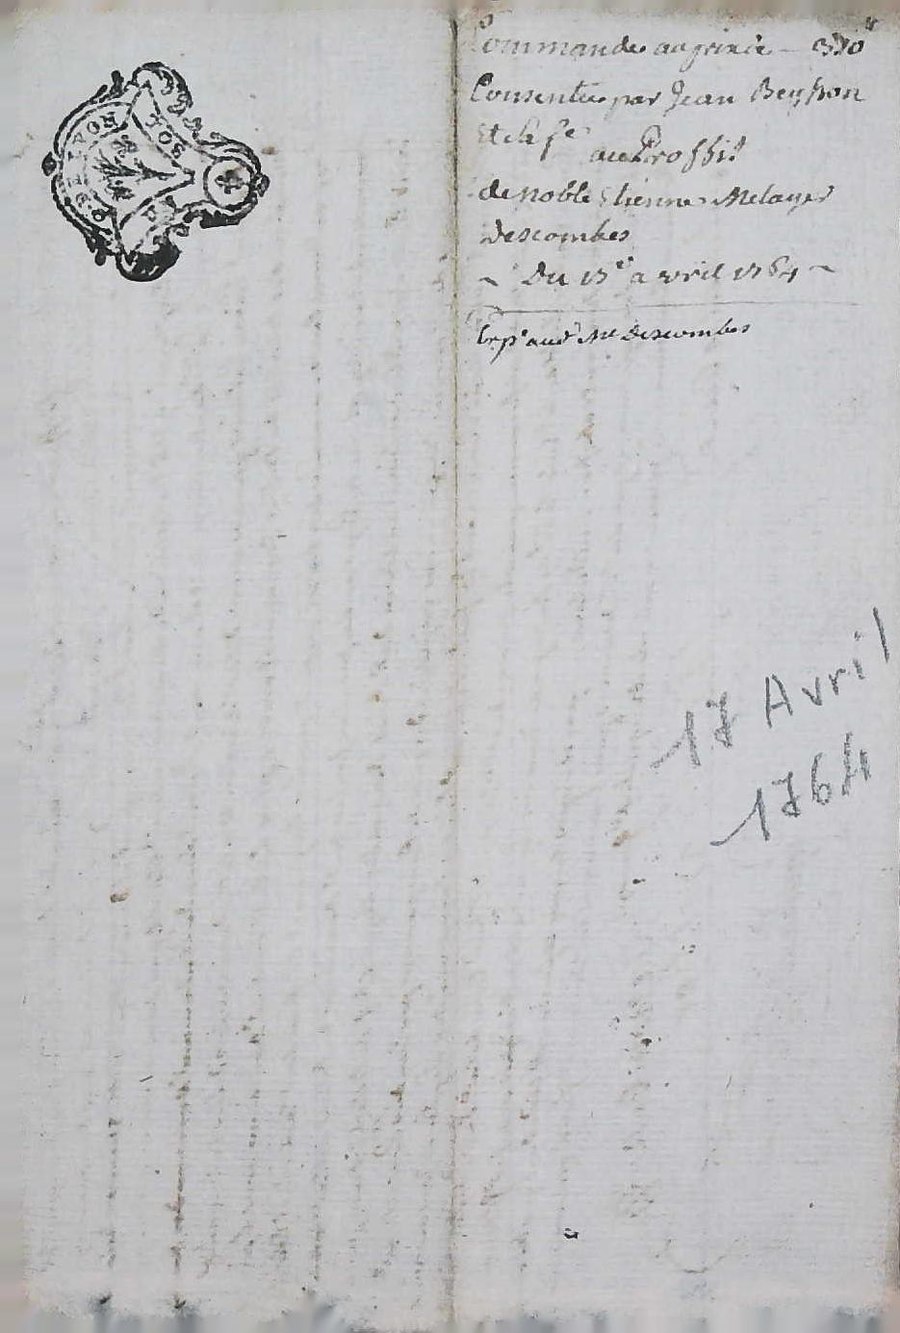 Commande au prix de 330
Consentie par Jean Beysson
Et sa fe
au Proffit
de noble Etienne Melayer
Descombes
~ Du 17e avril 1764 ~
Exp. aud. Mr. Descombes
17 Avril
1764
SOL